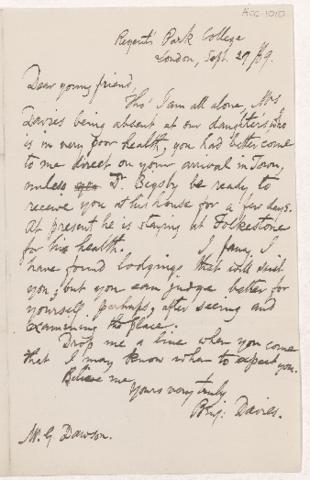 Acc-1010
Regent's Park College
London, Sept. 27 /69.
Dear young friend,
Tho' I am all alone, Mrs
Davies being absent at our daughter's who
is in very poor health, you had better come
to me direct on your arrival in Town
unless Dr. Bigsby be ready to
receive you at his house for a few days.
At present he is staying at Folkestone
for his health. I fancy I
have found lodgings that will suit
you; but you can judge better for
yourself perhaps, after seeing and
examining the place.
Drop me a line when you come
that I may know when to expect you.
Believe me
Yours very truly
Benj: Davies.
Mr. G Dawson.